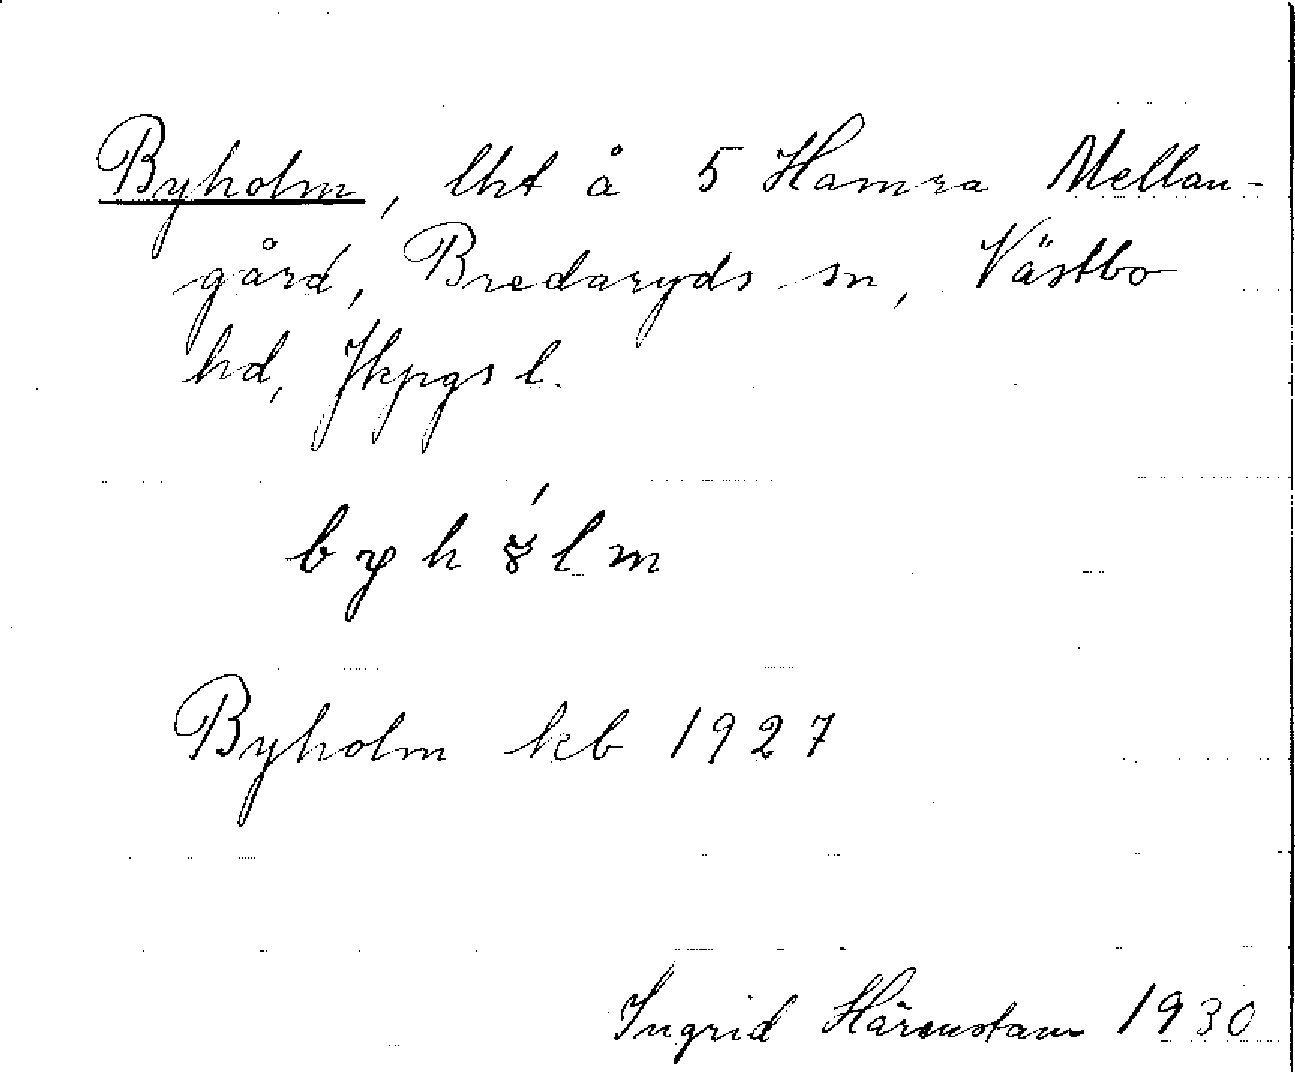 Byholm, lht å 5 Hamra Mellan-
gård, Bredaryds sn, Västbo
hd, Jkpgs l.
Byholm kb 1927
Ingrid Härenstam 1930